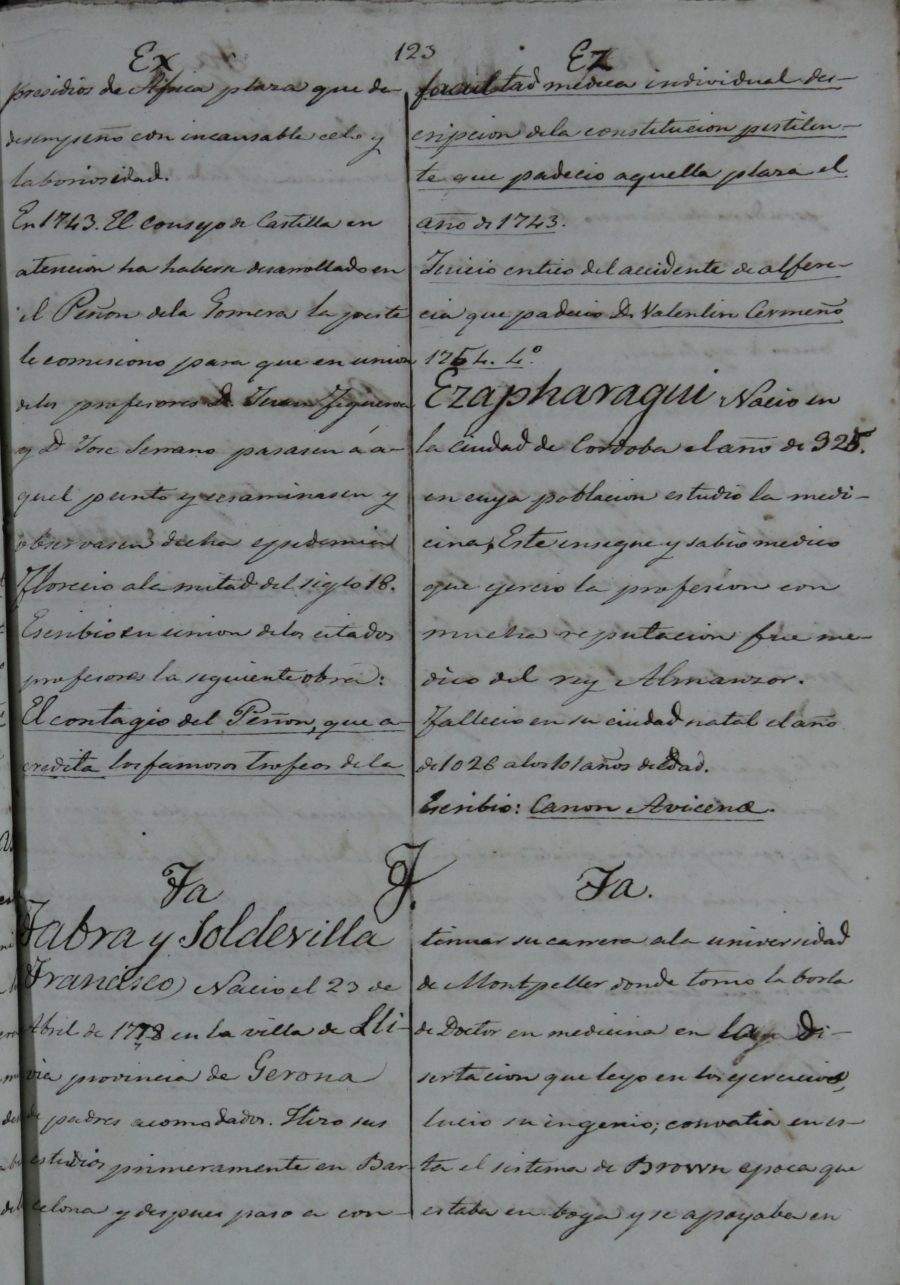 123
Ex
presidios de Africa plaza que de
desempeño con incansable celo y
laboriosidad.
En 1743. El consejo de Castilla en
atencion ha haberse desarrollado en
el Peñon dela Gomera la peste
le comisiono para que en union
delos profesores D. Juan Figueroa
y D. Jose Serrano pasasen á a-
quel punto y ecsaminasen y
observasen dicha epidemia
Florecio ala mitad del siglo 18.
Escribio en union delos citados
profesores la siguiente obra:
El contagio del Peñon, que a-
credita los famosos trofeos de la
Ez
facultad medica individual des-
cripcion dela constitucion pestilen-
te que padecio aquella plaza el
año de 1743.
Juicio critico del accidente de alfere-
cia que padecio D. Valentin Cermeño
1754. 4.º
Ezapharagui Nacio en
la ciudad de Cordoba el año de 925.
en cuya poblacion estudio la medi-
cina, Este insegne y sabio medico
que ejercio la profesion con
mucha reputacion fue me-
dico del rey Almanzor.
Fallecio en su ciudad natal el año
de 1026 a los 101 años de Edad.
Escribio: Canon Avicenæ.
F.
Fa
Fabra y Soldevilla
Francisco) Nacio el 23 de
Abril de 1778 en la villa de Lli-
via provincia de Gerona
de padres acomodados. Hizo sus
estudios primeramente en Bar-
celona y despues paso a con-
Fa.
tinuar su carrera ala universidad
de Montpeller donde tomo la borla
de Doctor en medicina en la Di-
sertacion que leyo en los ejercicios,
lucio su ingenio; convatia en es-
ta el sistema de Brown epoca que
estaba en boga y se apoyaba en